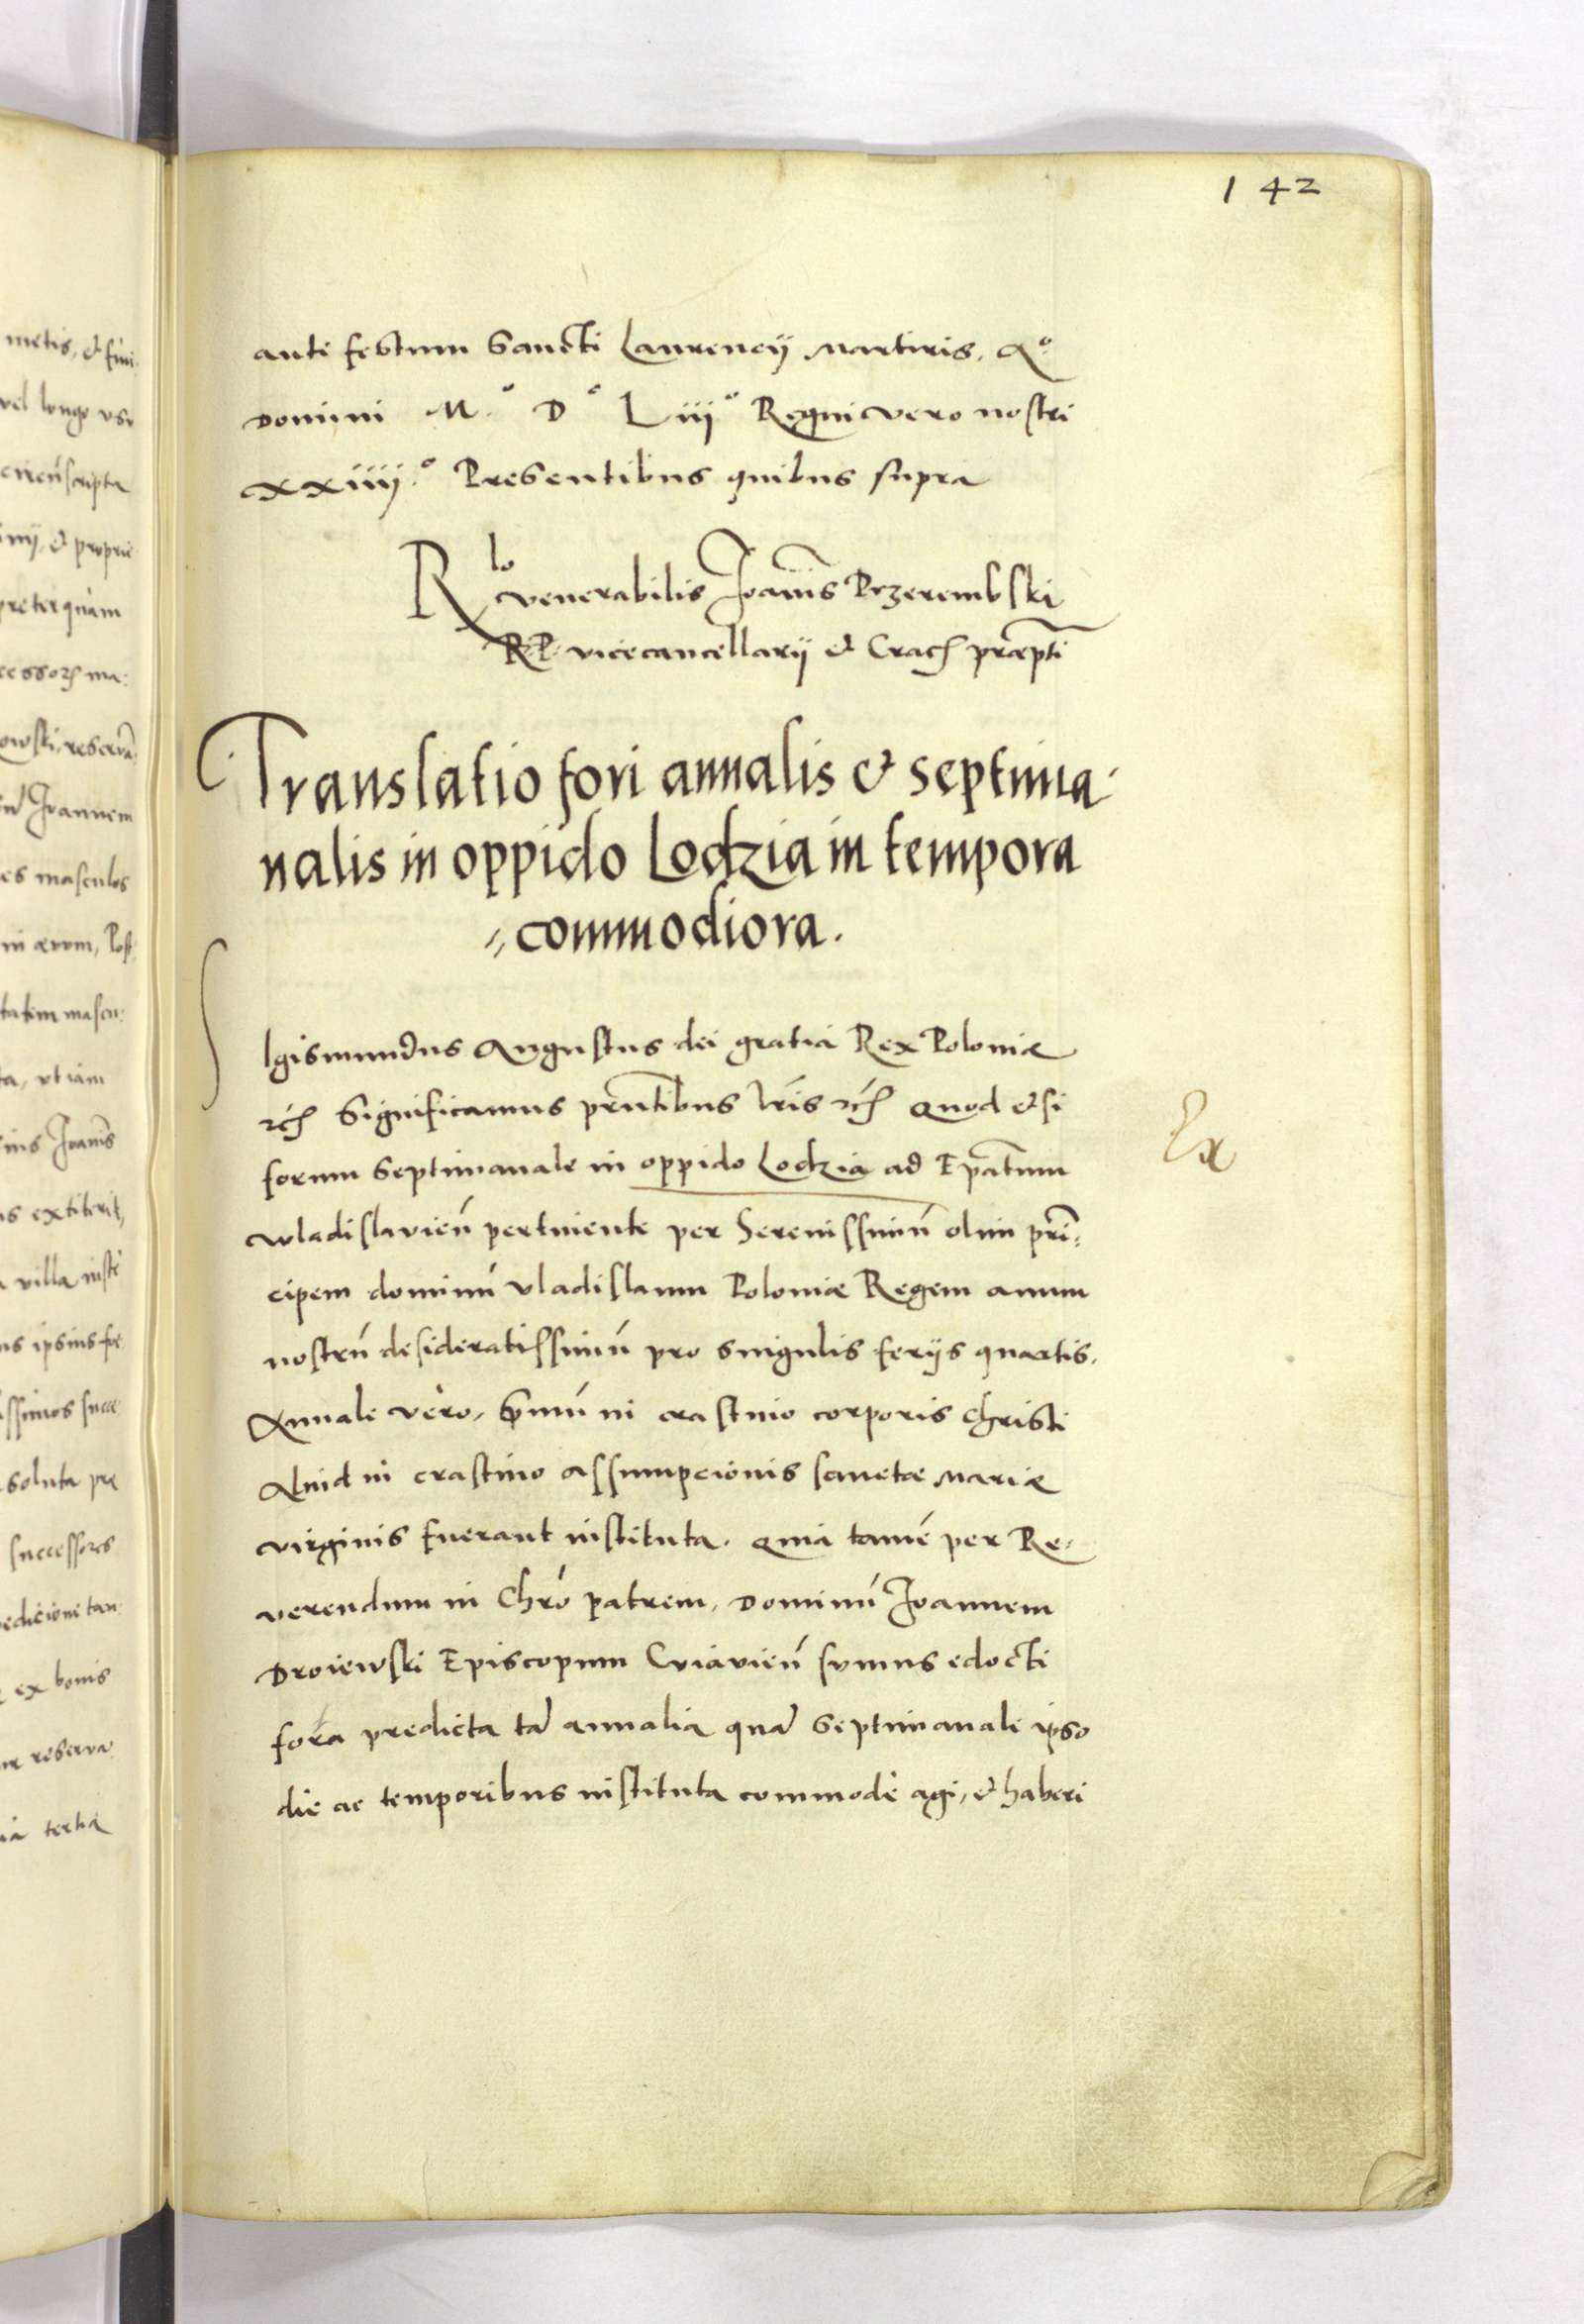 142
ante festum Sancti Laurencij Martiris. Aº
Domini M.º Dº Liijº Regni vero nostri
xxiiij.º Presentibus quibus supra
Rlo venerabilis Joañis Przerembski
R. P. vicecancellarij et Crac præpti
Translatio fori annalis et septima-
nalis in oppido Lodzia in tempora
commodiora.
SIgismundus Augustus dei gratia Rex Poloniæ
etc Significamus pñtibus lris etc Quod etsi
forum Septimanale in oppido Lodzia ad Epatum
Wladislavieñ pertinente per Serenissimũ olim prin-
cipem dominũ Vladislaum Poloniæ Regem auum
nostrũ desideratissimũ pro singulis ferijs quartis.
Annale vero, Primũ in crastino corporis Christi
Aliud in crastino assumpcionis sanctæ Mariæ
virginis fuerant instituta. Quia tamẽ per Re-
verendum in Chro patrem, Dominũ Joannem
Droiewski Episcopum Cuiavieñ sumus edocti
fora predicta tã annalia quã Septimanale ipso
die ac temporibus instituta commode agi, et haberi
metis, et fini
vel longo usu
circũscripta
preterquam
owski, reserva
Joannem
es masculos
tatem mascu:
ta, ut iam
ius Joañis
us extiterit,
villa iuste
issimos succe
soluta præ
successores
ex bonis
reserva
tertia